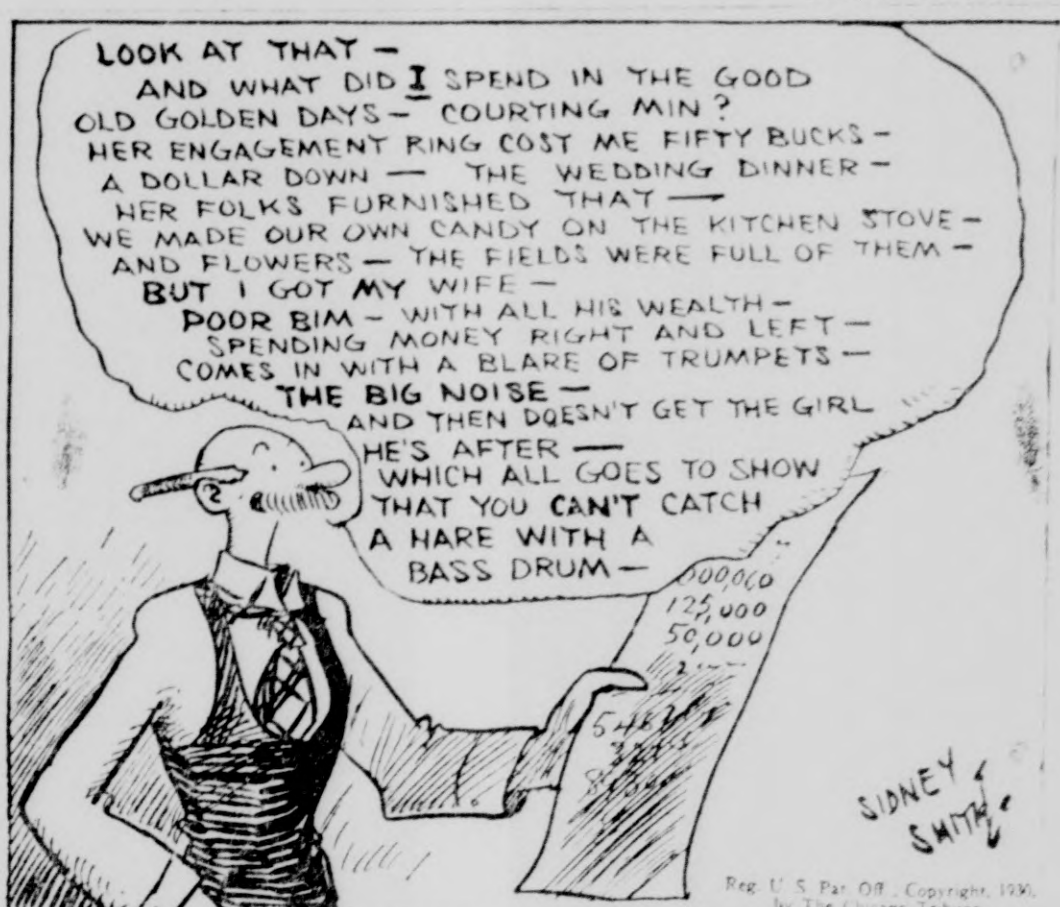 LOOK AT THAT —
AND WHAT DID I SPEND IN THE GOOD
OLD GOLDEN DAYS — COURTING MIN?
HER ENGAGEMENT RING COST ME FIFTY BUCKS —
A DOLLAR DOWN — THE WEDDING DINNER —
HER FOLKS FURNISHED THAT —
WE MADE OUR OWN CANDY ON THE KITCHEN STOVE —
AND FLOWERS — THE FIELDS WERE FULL OF THEM —
BUT I GOT MY WIFE —
POOR BIM — WITH ALL HIS WEALTH —
SPENDING MONEY RIGHT AND LEFT —
COMES IN WITH A BLARE OF TRUMPETS —
THE BIG NOISE —
AND THEN DOESN'T GET THE GIRL
HE'S AFTER —
WHICH ALL GOES TO SHOW
THAT YOU CAN'T CATCH
A HARE WITH A
BASS DRUM —
125,000
50,000
SIDNEY
SMITH
Reg. U. S. Pat. Off., Copyright, 1930,
by The Chicago Tribune